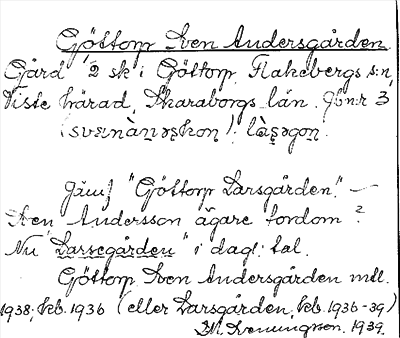 Göttorp Sven Andersgården
Gård 1/2 sk i Göttorp, Flakebergs s:n,
Viste härad, Skaraborgs län. Jbnr 3
(svɛnàṇəṣkoṇ): làṣəgoṇ.
Jämf "Göttorp Larsgården." —
Sven Andersson ägare fordom?
Nu "Larsegården" i dagl. tal.
Göttorp Sven Andersgården mtl.
1938; kb. 1936 (eller Larsgården, kb. 1936-39)
1939.